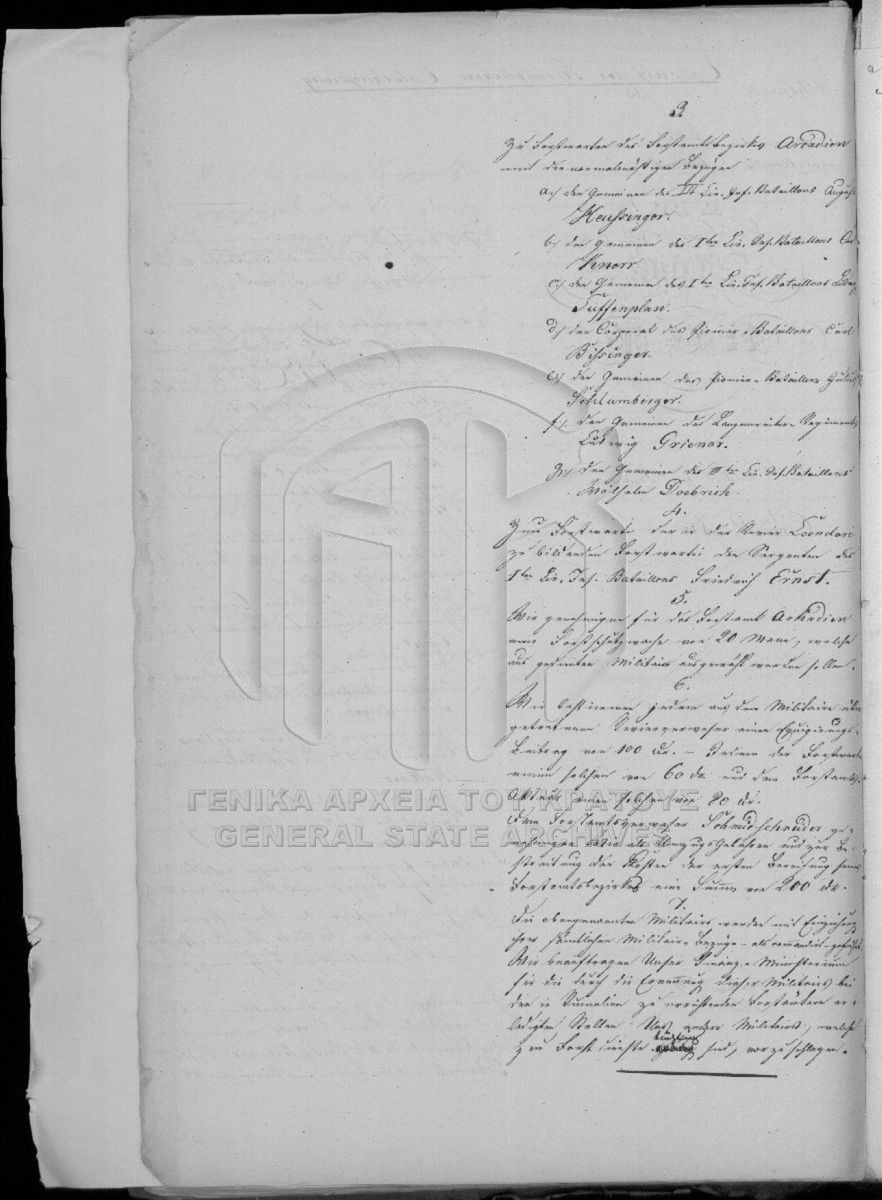 3.
Zu Forstwarten des Forstamtsbezirks Arcadien
mit den normalmäßigen Bezügen
a.) den Gemeinen des Lin. Inf. Bataillons August
Heussinger.
b.) den Gemeinen des Iten Lin. Inf. Bataillons Carl
Knorr
c.) den Gemeinen des Iten Lin. Inf. Bataillons Ludwig
Tüffenplan.
d.) den Corporal des Pionier-Bataillons Carl
Bissinger.
e.) den Gemeinen des Pionier-Bataillons Julius
Schlumberger.
f.) den Gemeinen des Lanzenreiter-Regiments
Ludwig Griener.
g.) den Gemeinen des IIIten Lin. Inf. Bataillons
Wilhelm Doebrich.
4.
Zum Forstwarte der in dem Revier
zu bildenden Forstwartei den Sergenten des
Iten Lin. Inf. Bataillons Friedrich Ernst.
5.
Wir genehmigen für das Forstamt Arkadien
eine Forstschutzwache von 20 Mann, welche
aus gedienten Militairs ausgewählt werden sollen.
6.
Wir bestimmen jedem aus dem Militaire über
getretenen Revierverweser einen Equipirungs-
Beitrag von 100 Dr. – Jedem der Forstwarte
einen solchen von 60 Dr. und dem Forstamts-
Aktuar einen solchen von 80 Dr.
Dem Forstamtsverweser Schmidschneider ge-
nehmigen Wir als Umzugsgebühren und zur Be-
streitung der Kosten der ersten Bereisung seines
Forstamtsbezirkes eine Summe von 200 Dr.
7.
Die obengenannten Militairs werden mit Einziehung
ihrer sämtlichen Militair-Bezüge – als commandirt geführt.
Wir beauftragen Unser Kriegs-Ministerium
für die durch die Ernennung dieser Militairs bei
den in Rumelien zu errichtenden Forstämtern er-
ledigten Stellen Uns andere Militairs, welche
zum Forstdienste tauglich sind, vorzuschlagen.
ΓΕΝΙΚΑ ΑΡΧΕΙΑ ΤΟΥ ΚΡΑΤΟΥΣ
GENERAL STATE ARCHIVES